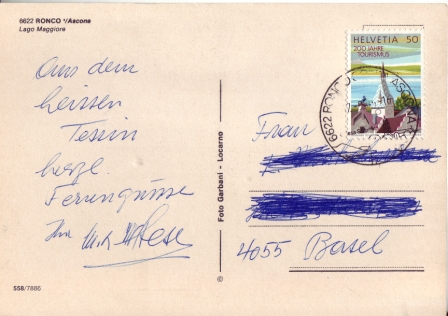 6622 RONCO s/Ascona
Lago Maggiore
Aus dem
heissen
Tessin
herzl.
Feriengrüsse
Ihre
HELVETIA 50
200 JAHRE
TOURISMUS
6622 RONCO S. ASCONA
Frau
4055 Basel
Foto Garbani - Locarno
©
558/7886